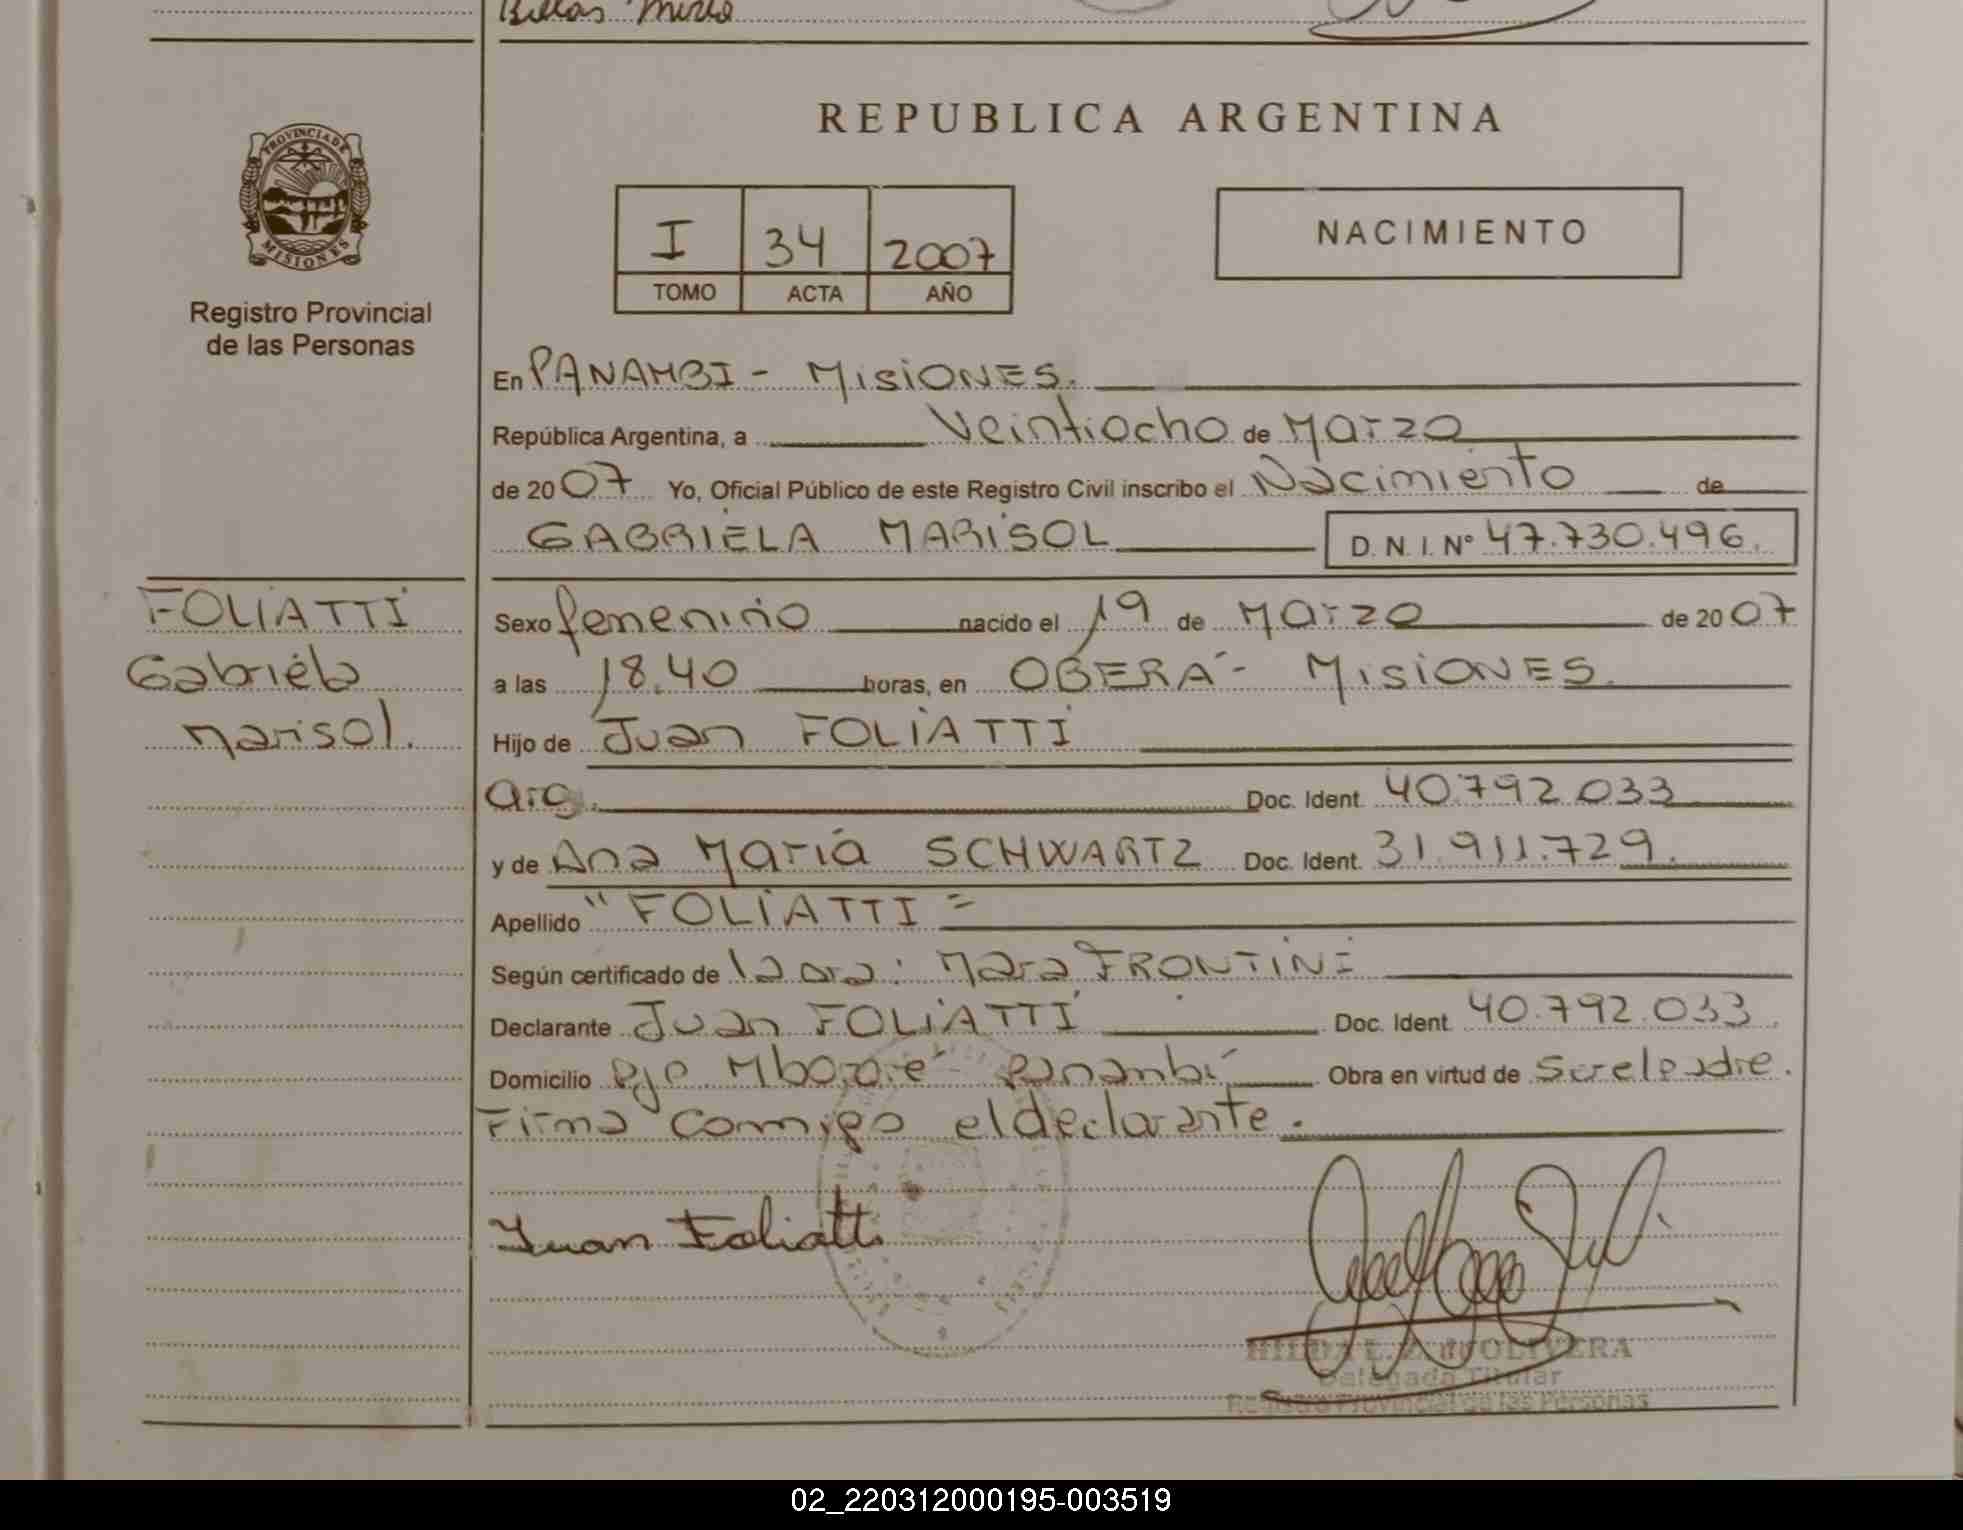 REPUBLICA ARGENTINA
PROVINCIA DE
MISIONES
Registro Provincial
de las Personas
I 34 2007
TOMO ACTA AÑO
NACIMIENTO
En PANAMBI - MISIONES.
República Argentina, a Veintiocho de Marzo
de 2007 Yo, Oficial Público de este Registro Civil inscribo el Nacimiento de
GABRIELA MARISOL D. N. I. Nº 47.730.496.
FOLIATTI
Gabriela
Marisol.
Sexo femenino nacido el 19 de Marzo de 2007
a las 18.40 horas, en OBERÁ - MISIONES.
Hijo de Juan FOLIATTI
arg. Doc. Ident. 40.792.033
y de Ana María SCHWARTZ Doc. Ident. 31.911.729.
Apellido "FOLIATTI"
Según certificado de la Dra: Mara FRONTINI
Declarante Juan FOLIATTI Doc. Ident. 40.792.033.
Domicilio Pje. Mbororé Panambí Obra en virtud de ser el padre.
Firma conmigo el declarante.
Juan Foliatti
HILDA L. OLIVERA
Delegada Titular
Registro Provincial de las Personas
02_220312000195-003519